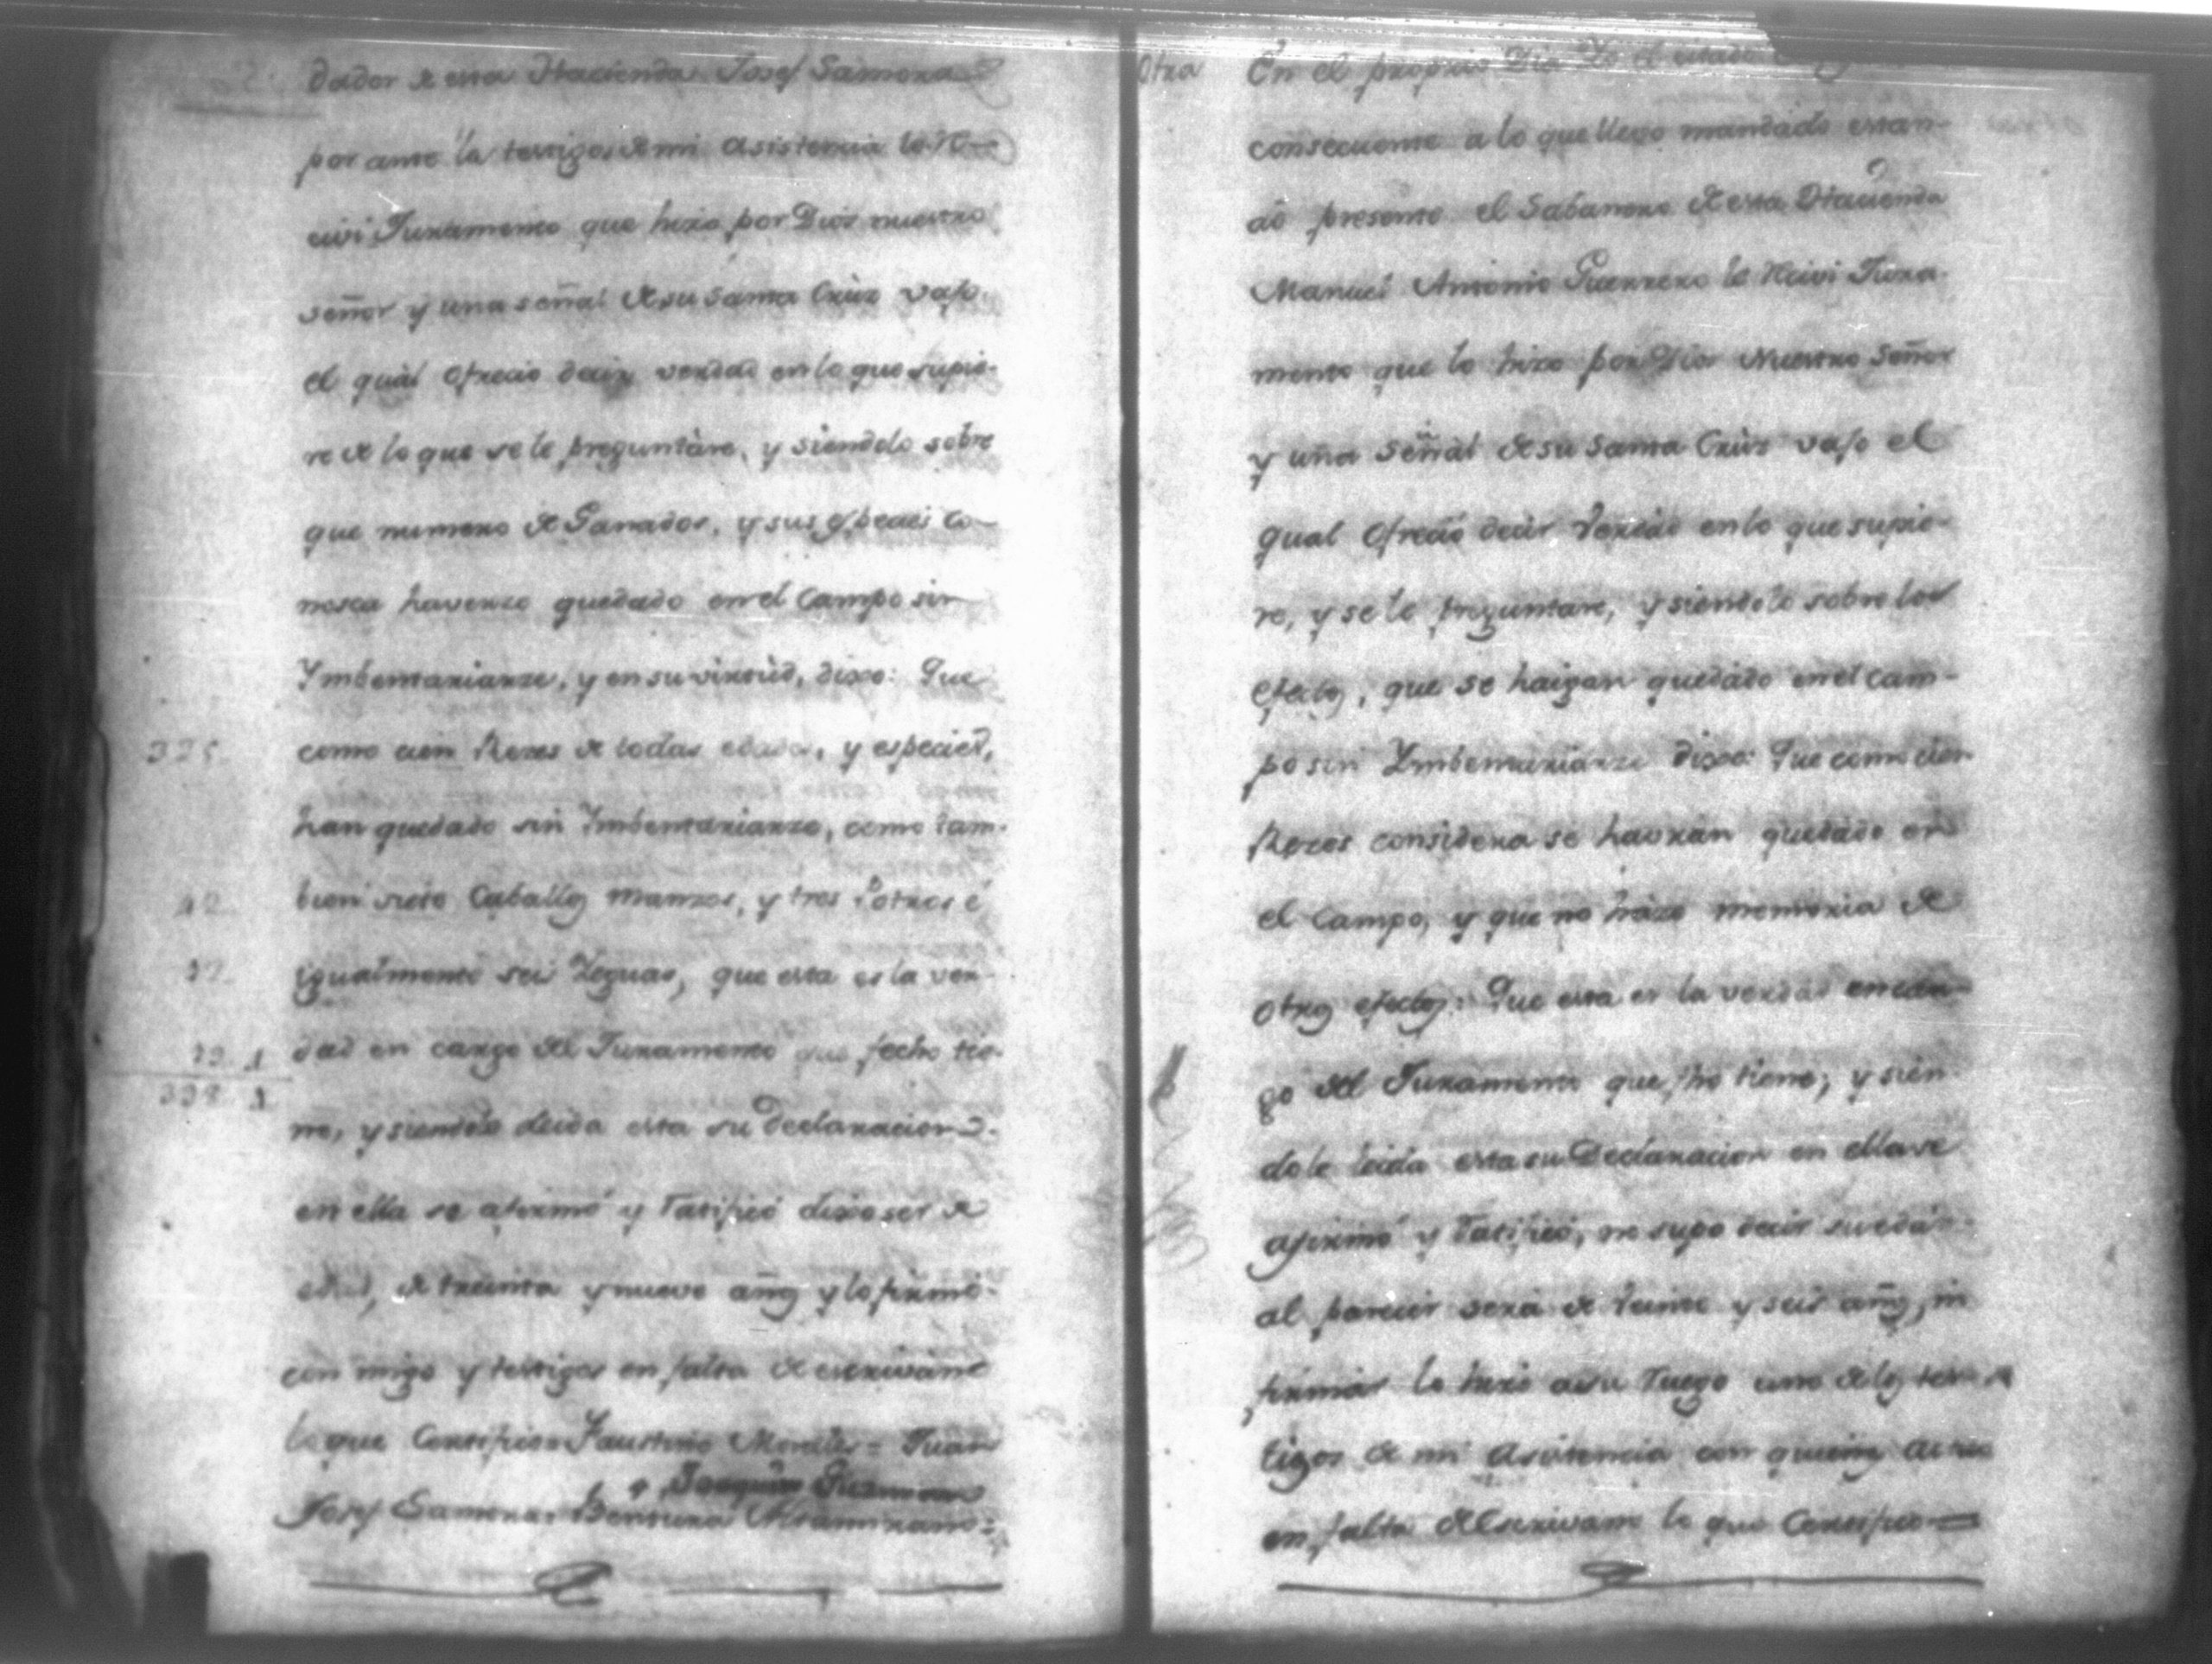 dador de esta Hacienda Josef Samora
por ante la testigos de mi Asistencia le Re-
civi Juramento que hizo por Dios nuestro
señor y una señal de su santa Crùz vajo
el qual ofrecio decir verdad en lo que supie-
re de lo que se le preguntàre, y siendolo sobre
que numero de Ganados, y sus espécies co-
nosca haverse quedado en el Campo sin
Ymbentariarse, y en su virtùd, dixo: Que
335. como cien Rezes de todas edades, y especies,
han quedado sin Ymbentariarse, como tam-
42. bien siete Caballos manzos, y tres Potros é
12. igualmente seis Yeguas, que esta es la ver-
dad en cargo del Juramento que fecho tie-
ne, y siendole leida esta su declaracion
en ella se afirmó y ratificó dixo ser de
edad, de treinta y nueve años y lo firmó
con migo y testigos en falta de escrivano
lo que Certifico= Faustino Morales= Juan
Joaquin Guzman
Josef Samora= Bentura Altamirano=
Otra En el propio Dia Yo el citado
consecuente a lo que llevo mandado estan-
do presente el Sabanero de esta Hacienda
Manuel Antonio Guerrero le Recivi Jura-
mento que lo hizo por Dios Nuestro Señor
y una Señal de su Santa Crùz vajo el
qual Ofreció decir Verdad en lo que supie-
re, y se le preguntare, y siendolo sobre los
efectos, que se haigan quedado en el cam-
po sin Ymbentariarse dixo: Que como cien
Rezes considera se havràn quedado en
el Campo, y que no háze memoria de
otros efectos: Que esta es la verdad en car-
go del Juramento que fho tiene; y sien-
dole leida esta su Declaracion en ella se
afirmó y ratificó, no supo decir su edad
al parecer será de veinte y seis años, ni
firmar lo hizo a su ruego uno de los tes-
tigos de mi Asistencia con quienes actuo
en falta de Escrivano lo que Certifico=